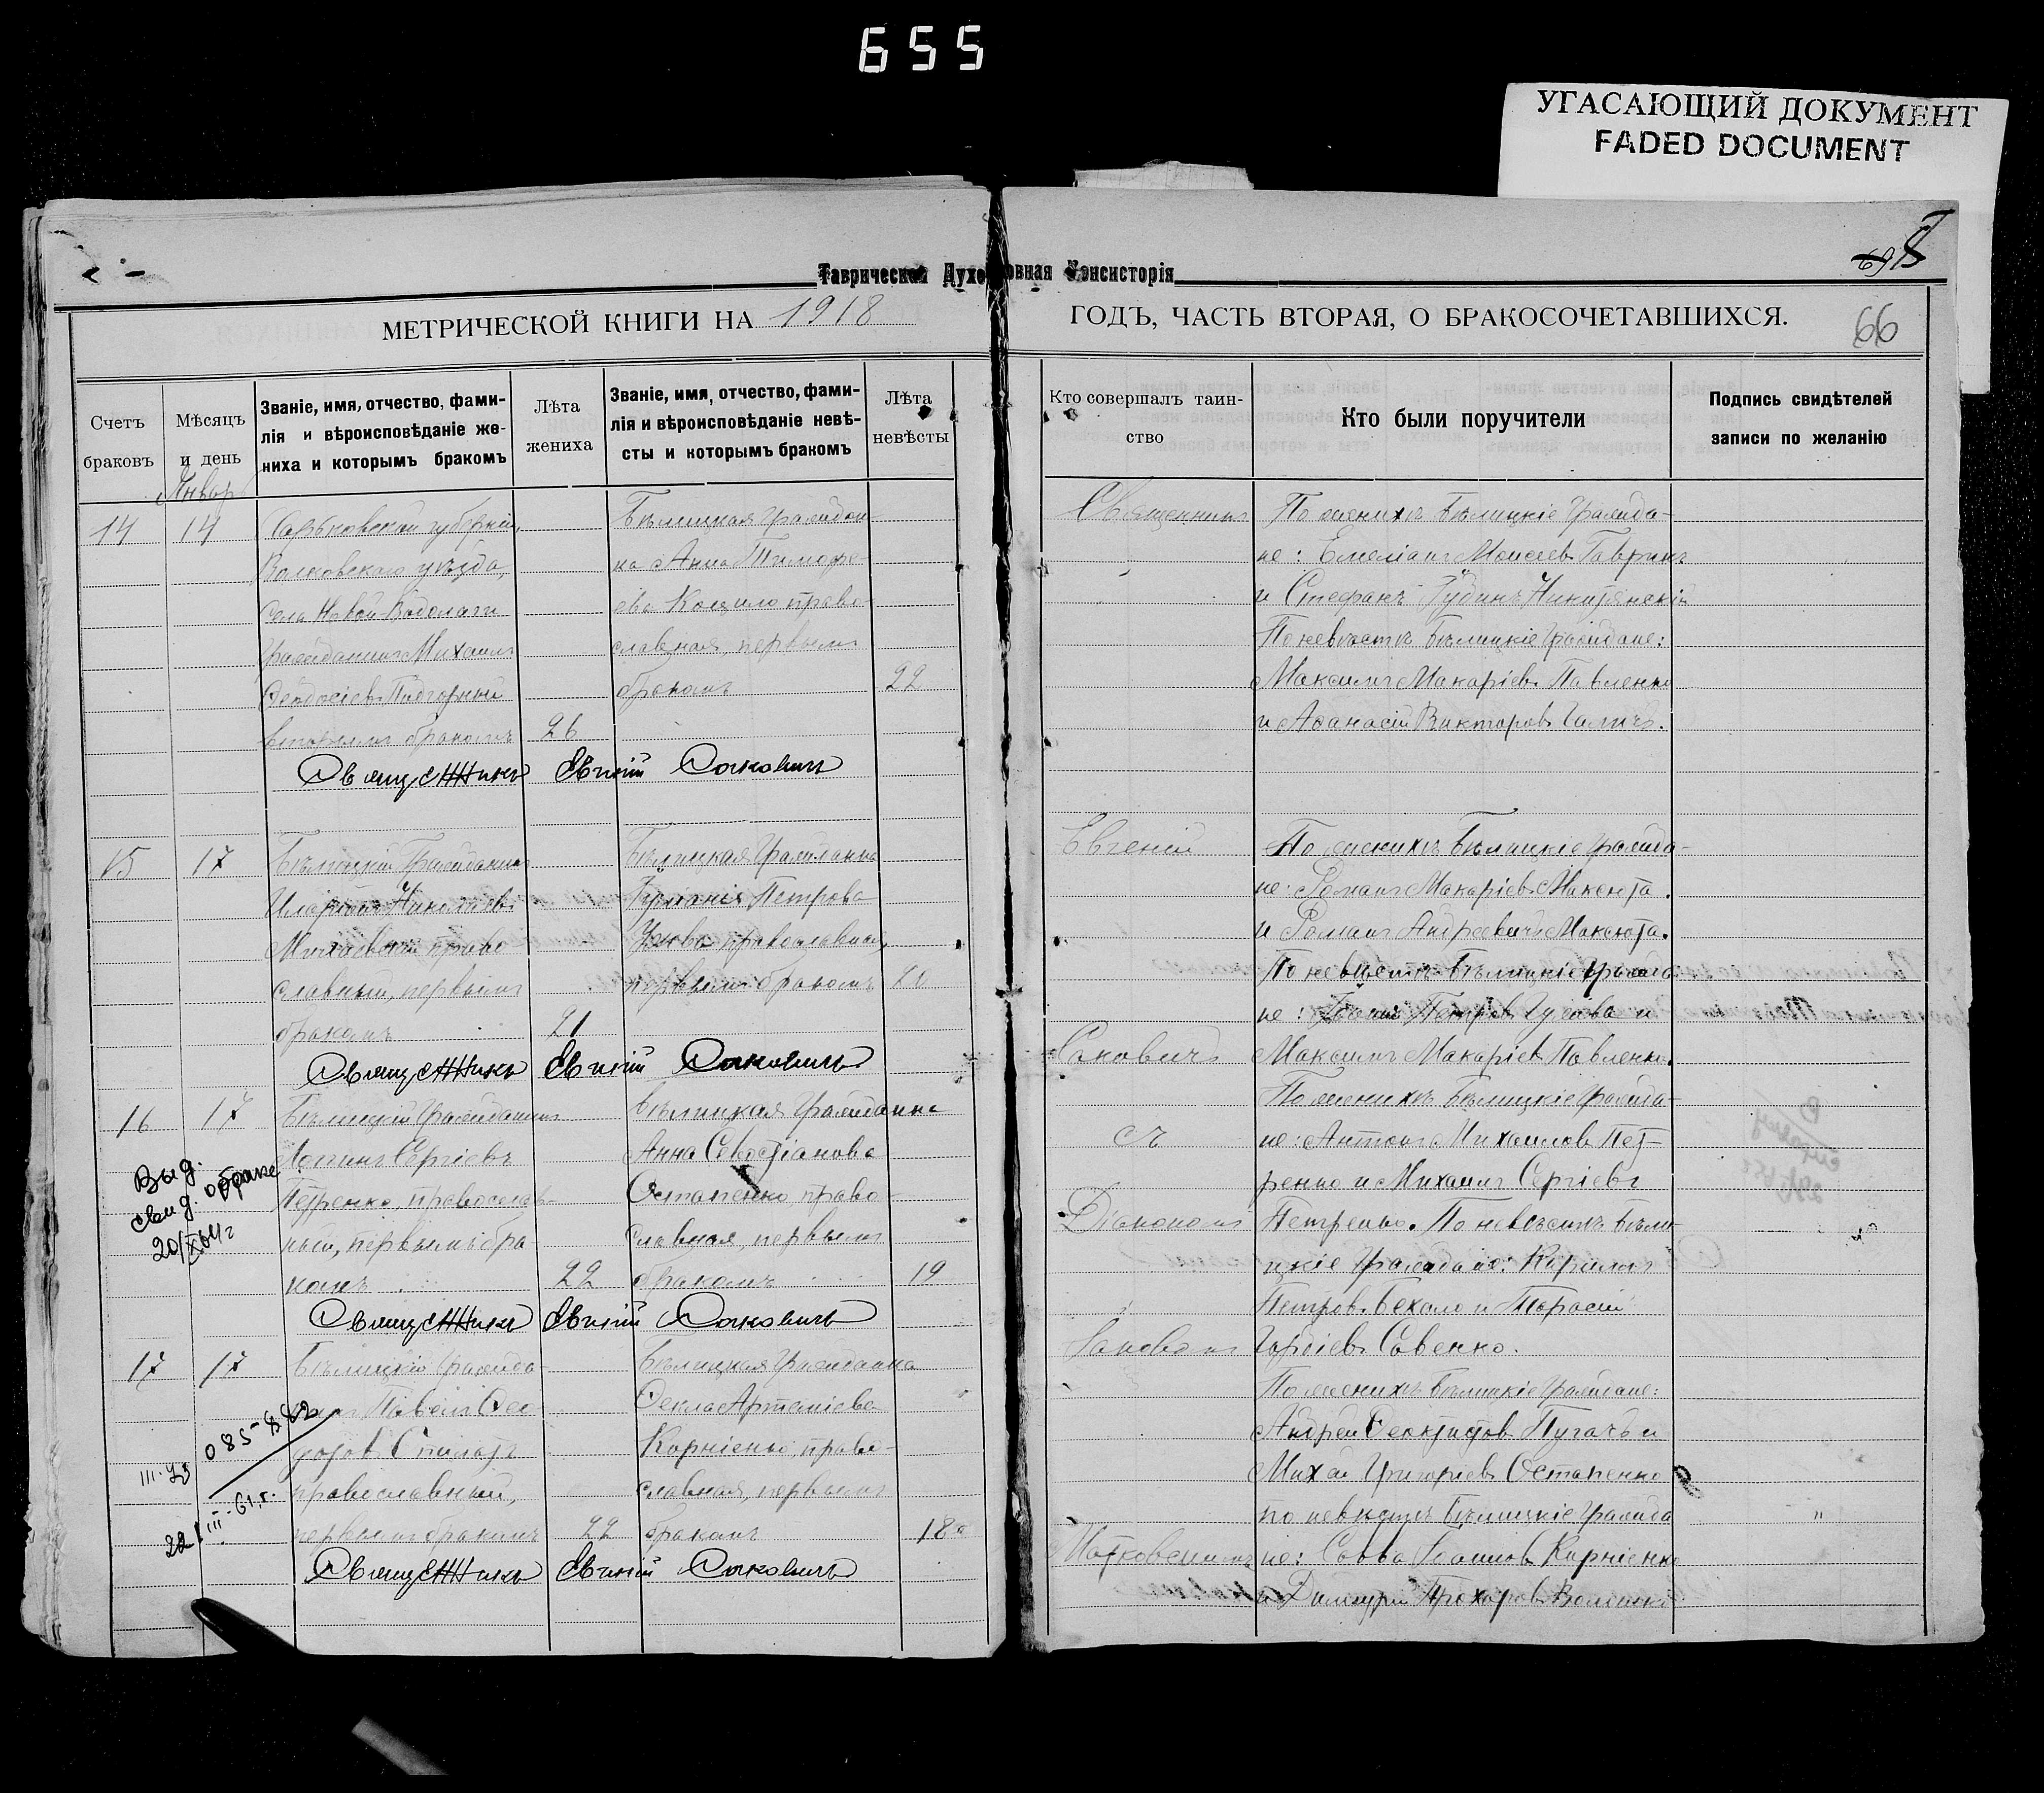 655
УГАСАЮЩИЙ ДОКУМЕНТ
FADED DOCUMENT
Таврическая Духовная Консисторія
МЕТРИЧЕСКОЙ КНИГИ НА 1918
ГОДЪ, ЧАСТЬ ВТОРАЯ, О БРАКОСОЧЕТАВШИХСЯ.
66
Счетъ браковъ
Мѣсяцъ и день
Званіе, имя, отчество, фами-
лія и вѣроисповѣданіе же-
ниха и которымъ бракомъ
Лѣта жениха
Званіе, имя, отчество, фами-
лія и вѣроисповѣданіе невѣ-
сты и которымъ бракомъ
Лѣта невѣсты
Кто совершалъ таин-
ство
Кто были поручители
Подпись свидѣтелей
записи по желанію
Январь
14
14
Харьковской губерніи,
Волковскаго уѣзда,
села Новой-Водолаги
гражданинъ Михаилъ
Ѳеодосіевъ Пидгорный
вторымъ бракомъ
26
Бѣлицкая граждан
ка Анна Тимофе-
ева Кощило право-
славная, первымъ
бракомъ
22
Священникъ
По женихѣ Бѣлицкіе гражда-
не: Емеліанъ Моисеевъ Гавринъ
и Стефанъ
По невѣстѣ Бѣлицкіе граждане:
Максимъ Макаріевъ Павленко
и Аѳанасій Викторовъ Галичъ.
Священникъ Евгеній Саковичъ
15
17
Бѣлицкій Гражданинъ
Иларіонъ Николаевъ
право
славный, первымъ
бракомъ
21
Бѣлицкая гражданка
Петрова
православная,
первымъ бракомъ
Евгеній
По женихѣ Бѣлицкіе гражда-
не: Романъ Макаріевъ Максюта
и Романъ Андреевичъ Максюта.
По невѣстѣ Бѣлицкіе гражда
не: Петровъ и
Саковичъ
Максимъ Макаріевъ Павленко.
Священникъ Евгеній Саковичъ
16
17
Бѣлицкій гражданинъ
Логинъ Сергіевъ
Петренко, православ-
ный, первымъ бра-
комъ
22
Бѣлицкая гражданка
Анна Севостіанова
Остапенко, право-
славная, первымъ
бракомъ
19
Выд.
свид. о браке
20/XI 64 г
По женихѣ Бѣлицкіе гражда-
съ
не: Антонъ Михаиловъ Пет-
ренко и Михаилъ Сергіевъ
Діакономъ
Петренко. По невѣстѣ Бѣли-
цкіе граждане: Кириллъ
Петровъ Бехало и Тарасій
Гордіевъ Савенко.
Священникъ Евгеній Саковичъ
17
17
Бѣлицкій гражда-
нинъ Павелъ Ѳео
православный,
первымъ бракомъ
22
Бѣлицкая гражданка
Ѳекла Артеміева
Корніенко, право-
славная, первымъ
бракомъ
18
085-882
III-43
22/III-61 г.
По женихѣ Бѣлицкіе граждане:
Андрей Ѳеоктистовъ Пугачъ и
Михаи Григоріевъ Остапенко
по невѣстѣ Бѣлицкіе гражда
не: Савва Іоанновъ Корніенко
и Димитрій Прохоровъ
Священникъ Евгеній Саковичъ